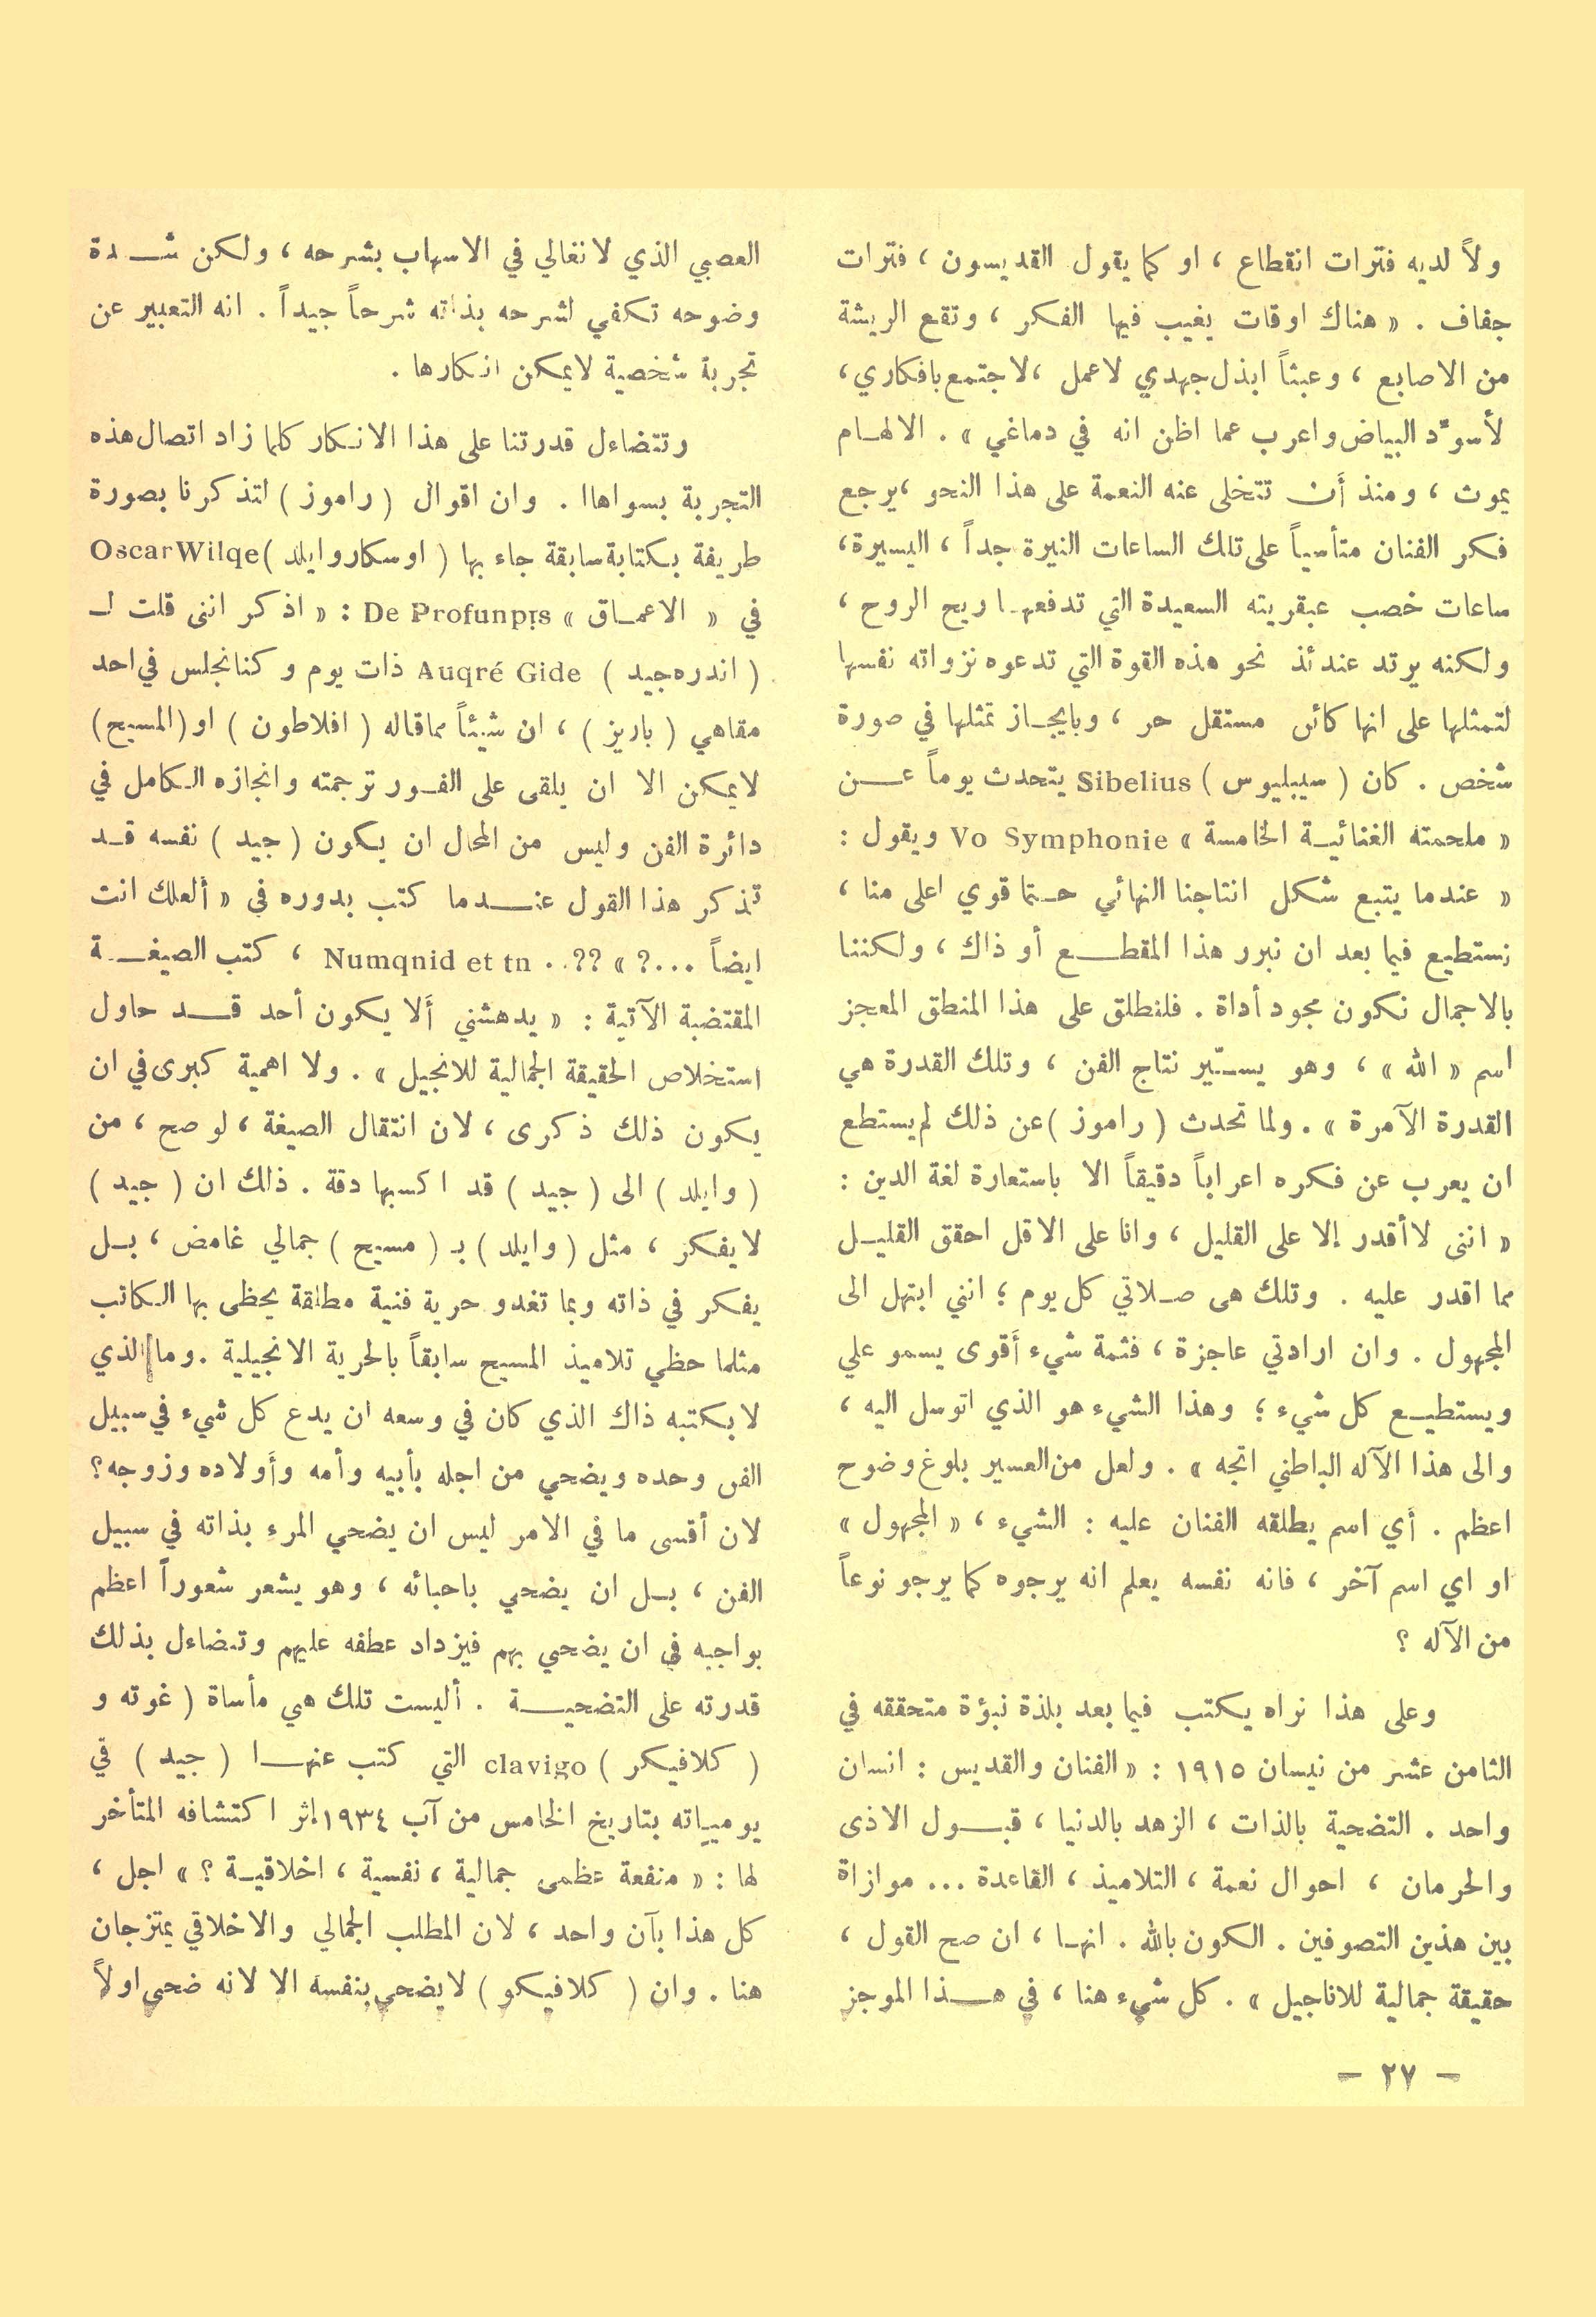 ولاً لديه فترات انقطاع ، او كما يقول القديسون ، فترات
جفاف . « هناك اوقات يغيب فيها الفكر ، وتقع الريشة
من الاصابع ، وعبثاً ابذل جهدي لاعمل ،لاجتمع بافكاري،
لأسوّد البياض واعرب عما اظن انه في دماغي » . الالهام
يموت ، ومنذ أن تتخلى عنه النعمة على هذا النحو ،يرجع
فكر الفنان متأسياً على تلك الساعات النيرة جداً ، اليسيرة،
ساعات خصب عبقريته السعيدة التي تدفعها ريح الروح ،
ولكنه يرتد عندئذ نحو هذه القوة التي تدعوه نزواته نفسها
لتمثلها على انها كائن مستقل حر ، وبايجاز تمثلها في صورة
شخص . كان ( سيبليوس ) Sibelius يتحدث يوماً عن
« ملحمته الغنائية الخامسة » Vo Symphonie ويقول :
« عندما يتبع شكل انتاجنا النهائي حتما قوي اعلى منا ،
نستطيع فيما بعد ان نبرر هذا المقطع أو ذاك ، ولكننا
بالاجمال نكون مجود أداة . فلنطلق على هذا المنطق المعجز
اسم « الله » ، وهو يسيّر نتاج الفن ، وتلك القدرة هي
القدرة الآمرة » . ولما تحدث ( راموز ) عن ذلك لم يستطع
ان يعرب عن فكره اعراباً دقيقاً الا باستعارة لغة الدين :
« انني لا أقدر إلا على القليل ، وانا على الاقل احقق القليل
مما اقدر عليه . وتلك هي صلاتي كل يوم ؛ انني ابتهل الى
المجهول . وان ارادتي عاجزة ، فثمة شيء أقوى يسمو علي
ويستطيع كل شيء ؛ وهذا الشيء هو الذي اتوسل اليه ،
والى هذا الآله الباطني اتجه » . ولعل من العسير بلوغ وضوح
اعظم . أي اسم يطلقه الفنان عليه : الشيء ، « المجهول »
او اي اسم آخر ، فانه نفسه يعلم انه يرجوه كما يرجو نوعاً
من الآله ؟
وعلى هذا نراه يكتب فيما بعد بلذة نبؤة متحققه في
الثامن عشر من نيسان ١٩١٥ : « الفنان والقديس : انسان
واحد . التضحية بالذات ، الزهد بالدنيا ، قبول الاذى
والحرمان ، احوال نعمة ، التلاميذ ، القاعدة ... موازاة
بين هذين التصوفين . الكون بالله . انها ، ان صح القول ،
حقيقة جمالية للاناجيل » . كل شيء هنا ، في هذا الموجز
العصبي الذي لا نغالي في الاسهاب بشرحه ، ولكن شدة
وضوحه تكفي لشرحه بذاته شرحاً جيداً . انه التعبير عن
تجربة شخصية لا يمكن انكارها .
وتتضاءل قدرتنا على هذا الانكار كلما زاد اتصال هذه
التجربة بسواهاا . وان اقوال ( راموز ) لتذكرنا بصورة
طريفة بكتابة سابقة جاء بها ( اوسكار وايلد ) Oscar Wilqe
في « الاعماق » De Profunpis : « اذكر انني قلت لـ
( اندره جيد ) Auqré Gide ذات يوم وكنا نجلس في احد
مقاهي ( باريز ) ، ان شيئاً مما قاله ( افلاطون ) او (المسيح)
لا يمكن الا ان يلقى على الفور ترجمته وانجازه الكامل في
دائرة الفن وليس من المحال ان يكون ( جيد ) نفسه قد
تذكر هذا القول عندما كتب بدوره في « ألعلك انت
ايضاً ...? » ??.. Numqnid et tn ، كتب الصيغة
المقتضبة الآتية : « يدهشني ألا يكون أحد قد حاول
استخلاص الحقيقة الجمالية للانجيل » . ولا اهمية كبرى في ان
يكون ذلك ذكرى ، لان انتقال الصيغة ، لو صح ، من
( وايلد ) الى ( جيد ) قد اكسبها دقة . ذلك ان ( جيد )
لا يفكر ، مثل ( وايلد ) بـ ( مسيح ) جمالي غامض ، بل
يفكر في ذاته وبما تغدو حرية فنية مطلقة يحظى بها الكاتب
مثلما حظي تلاميذ المسيح سابقاً بالحرية الانجيلية . وما الذي
لا يكتبه ذاك الذي كان في وسعه ان يدع كل شيء في سبيل
الفن وحده ويضحي من اجله بأبيه وأمه وأولاده وزوجه؟
لان أقسى ما في الامر ليس ان يضحي المرء بذاته في سبيل
الفن ، بل ان يضحي باحبائه ، وهو يشعر شعوراً اعظم
بواجبه في ان يضحي بهم فيزداد عطفه عليهم وتضاءل بذلك
قدرته على التضحية . أليست تلك هي مأساة ( غوته و
( كلافيكر ) clavigo التي كتب عنها ( جيد ) في
يومياته بتاريخ الخامس من آب ١٩٣٤ إثر اكتشافه المتأخر
لها : « منفعة عظمى جمالية ، نفسية ، اخلاقية ؟ » اجل ،
كل هذا بآن واحد ، لان المطلب الجمالي والاخلاقي يمتزجان
هنا . وان ( كلافيكو ) لا يضحي بنفسه الا لانه ضحى اولاً
— ٢٧ —